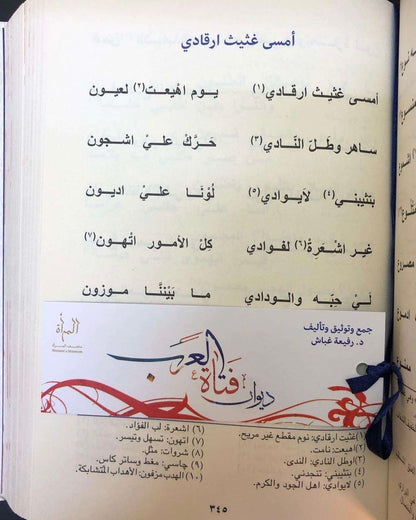 أمسى غثيث ارقادي
أمسى غثيث ارقادي(١) يوم اهيعت(٢) لعيون
ساهر وطَلّ النَّادي(٣) حَرَّكْ عليْ اشجون
بتثيبني(٤) لايوادي(٥) لُوْنَا عليْ اديون
غير اشْعَرِةْ(٦) لفوادي كلْ الأمور اتْهون(٧)
لَيْ حبّه والودادي ما بَيْننَّا موزون
جمع وتوثيق وتأليف
د. رفيعة غباش
ديوان فتاة العرب
المرأة
متحف المرأة
Women's Museum
(١) غثيث ارقادي: نوم مقطع غير مريح.
(٢) اهيعت: نامت.
(٣) اوطل النادي: الندى.
(٤) بتثيبني: تنجدني.
(٥) لايوادي: اهل الجود والكرم.
(٦) اشعرة: لب الفؤاد.
(٧) اتهون: تسهل وتيسر.
(٨) شروات: مثل.
(٩) چاسي: مغط وساتر كاس.
(١٠) الهدب مزفون: الأهداب المتشابكة.
٣٤٥